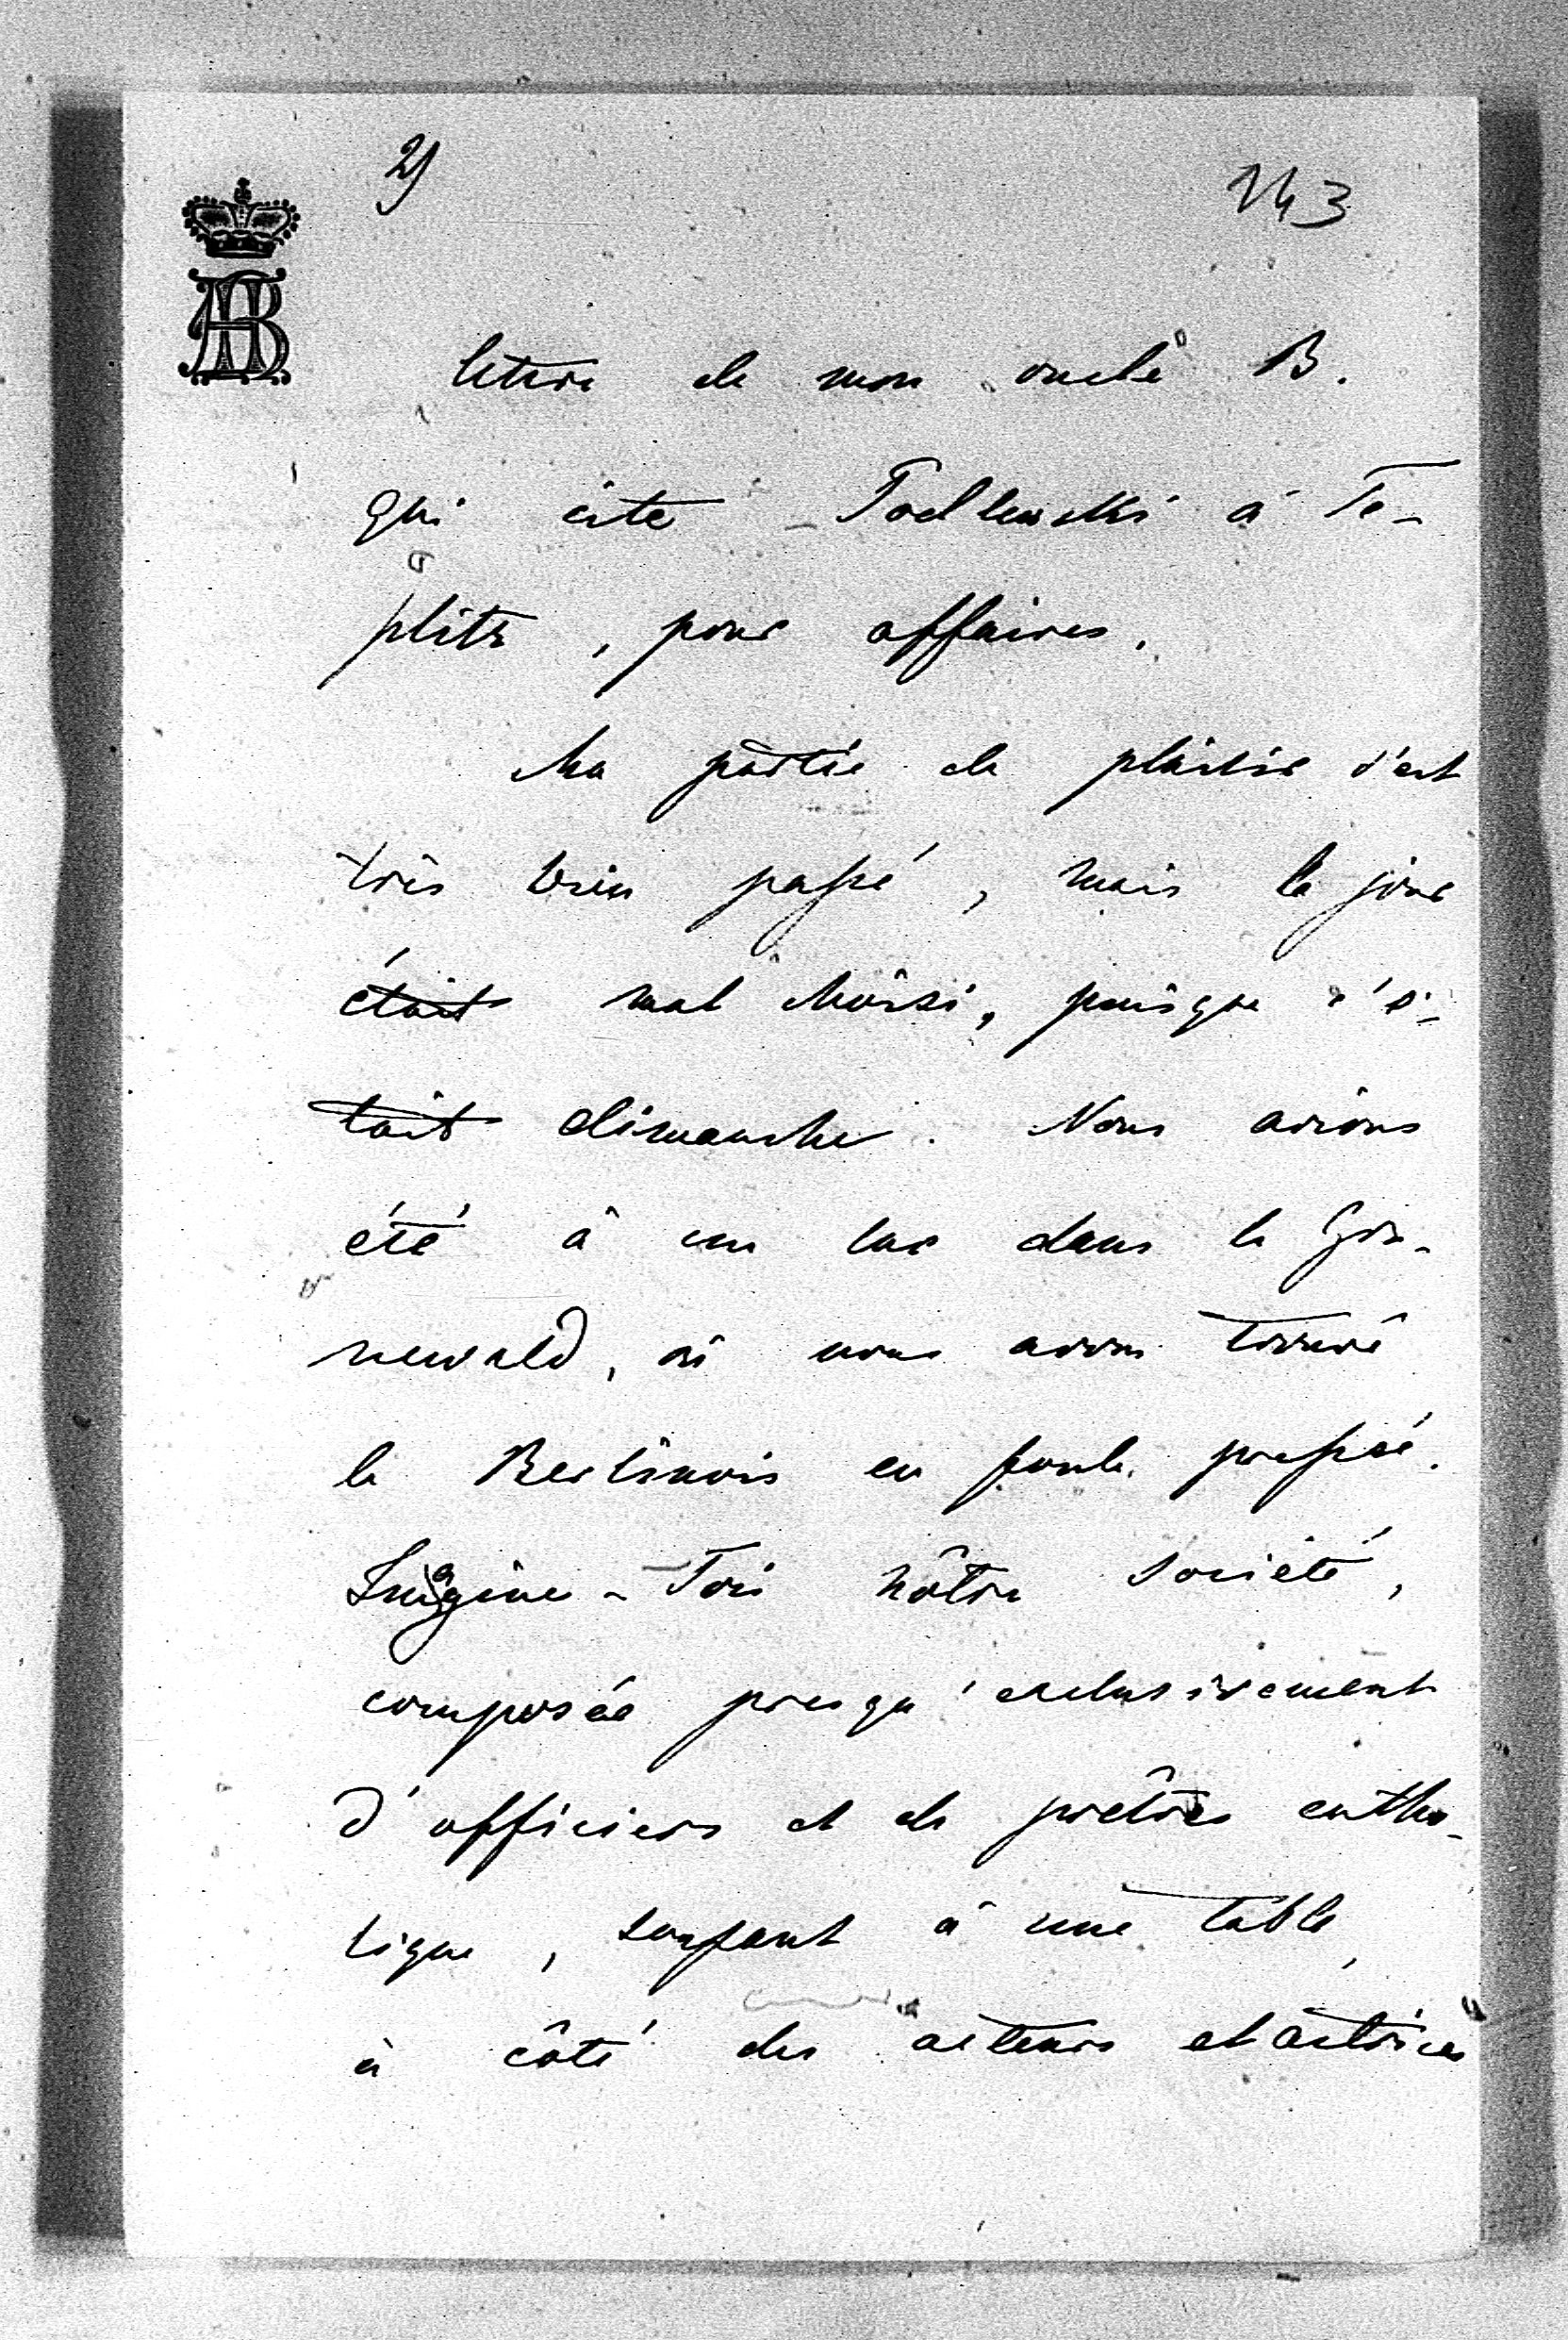 2)
143
AB
lettre de mon oncle B.
qui cite Podlewski à Te-
plitz, pour affaires.
Ma partie de plaisir s'est
très bien passé, mais le jour
était mal choisi, puisque c'é-
tait dimanche. Nous avions
été à un lac dans le Gru-
newald, où nous avons trouvé
le Berlinois en foule pressé.
Imagine-Toi nôtre société,
composée presqu'exclusivement
d'officiers et de prêtres catho-
lique, soupant à une table,
à côté des acteurs et actrices